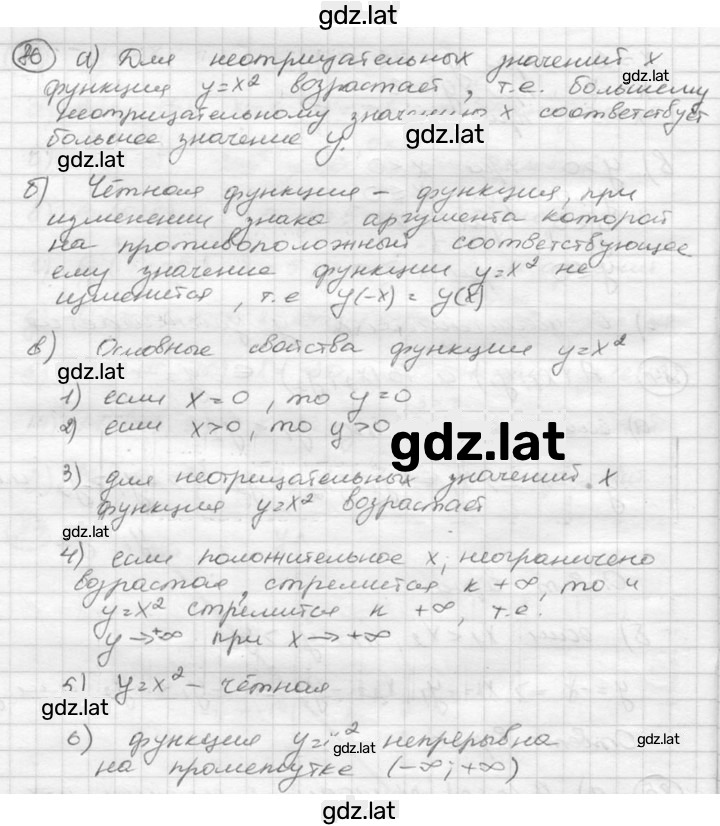 gdz.lat
86 а) Для неотрицательных значений x
gdz.lat
функция y=x² возрастает, т.е. большему
неотрицательному x соответствует
gdz.lat
большее значение y.
gdz.lat
б) Чётная функция – функция, при
изменении знака аргумента которой
на противоположный соответствующее
ему значение функции y=x² не
изменится, т.е y(-x) = y(x)
в) Основные свойства функции y=x²
gdz.lat
1) если x=0, то y=0
2) если x>0, то y>0
gdz.lat
3) для неотрицательных значений x
функция y=x² возрастает
gdz.lat
4) если положительное x, неограничено
возрастая, стремится к +∞, то и
y=x² стремится к +∞, т.е.
y→+∞ при x→+∞
5) y=x² – чётная
gdz.lat
6) функция y= ² непрерывна
gdz.lat
gdz.lat
на промежутке (-∞;+∞)
gdz.lat